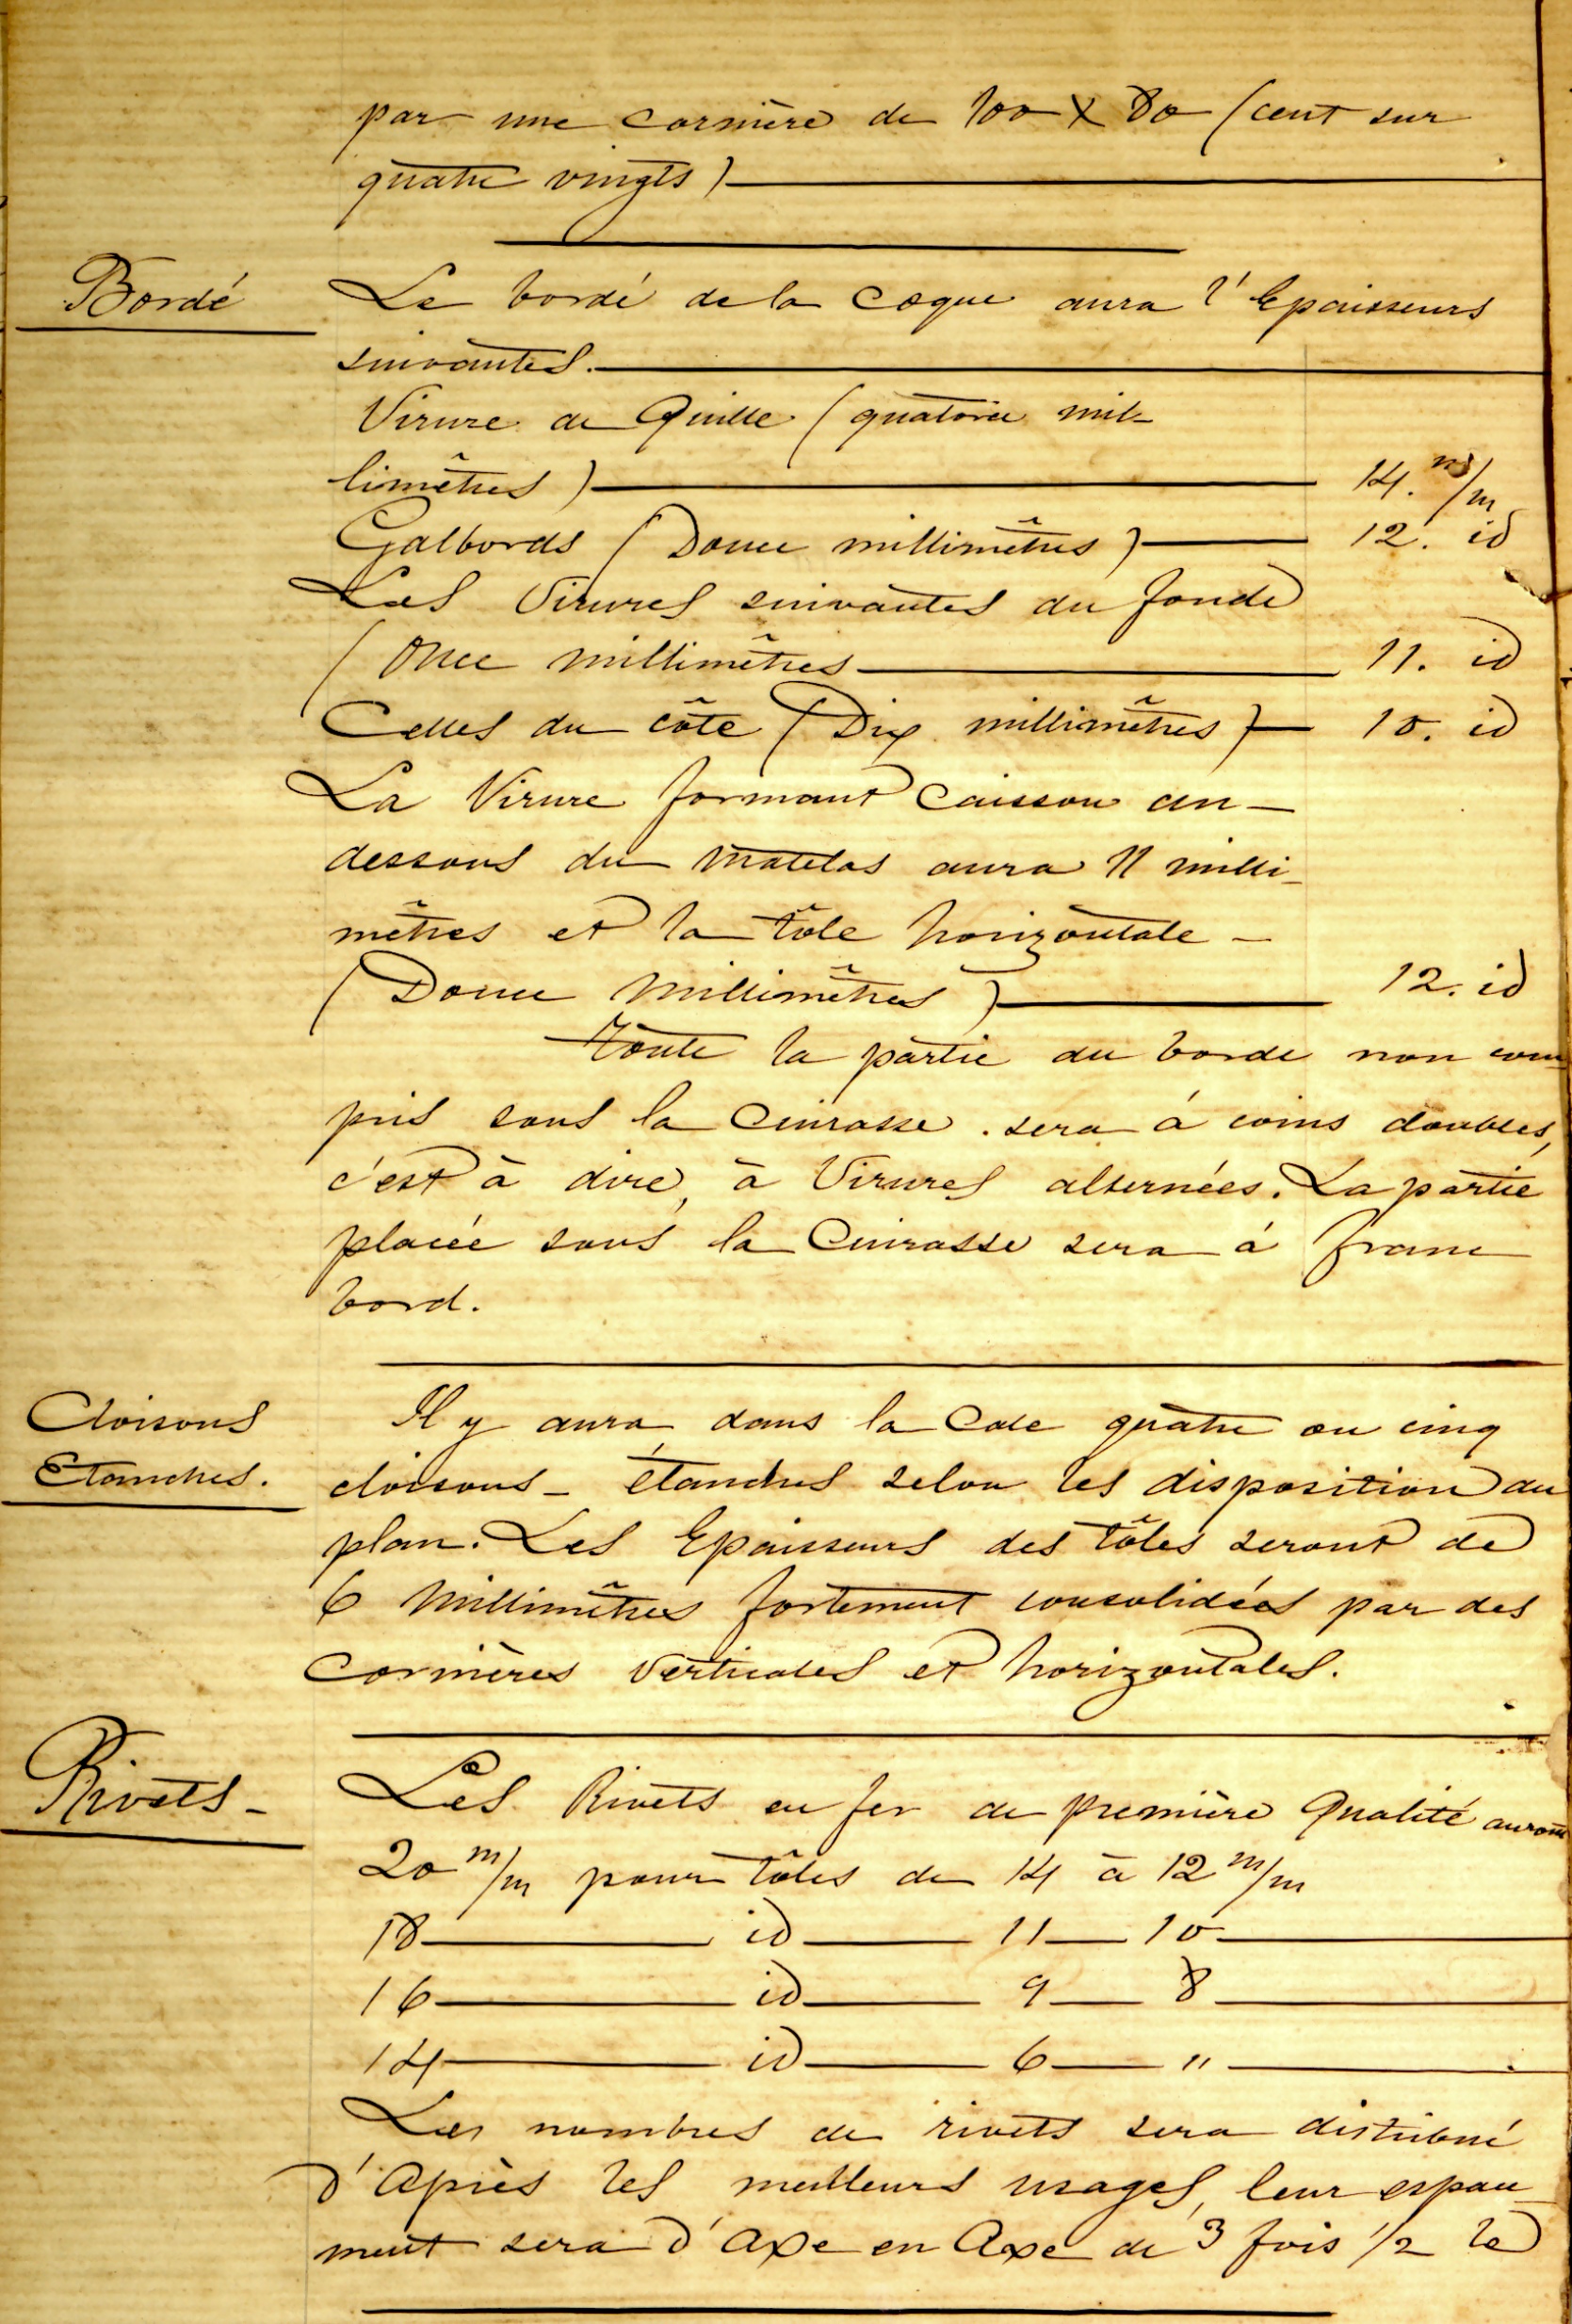 par une cornière de 100 X 80 (cent sur
quatre vingts)
Bordé
Le bordé de la Coque aura l'Epaisseurs
suivantes.
Virure de Quille (quatorze mil-
limêtres) 14. m/m
Galbords (Douce millimêtres) 12. id
Les Virures suivantes du fonde
(Once millimêtres 11. id
Celles du côte (Dix millimêtres) 10. id
La Virure formant Caisson au-
dessous du Matelas aura 11 milli-
mêtres et la tôle horizontale -
(Douce Millimêtres) 12. id
Toute la partie du borde non com
pris sous la Cuirasse. sera à coins doubles,
c'est à dire, à Virures alternées. La partie
placée sous la Cuirasse sera à franc
bord.
Cloisons
Etanches.
Il y aura dans la Cale quatre ou cinq
cloisons - étanches selon les disposition du
plan. Les Epaisseurs des tôles seront de
6 Millimêtres fortement consolidées par des
Cornières Verticales et horizontales.
Rivets -
Les Rivets en fer de première Qualité auront
20 m/m pour tôles de 14 à 12 m/m
18 id 11 10
16 id 9 8
14 id 6 "
Les nombres de rivets sera distribué
d'Après les meilleurs usages, leur espace
ment sera d'Axe en Axe de 3 fois 1/2 le